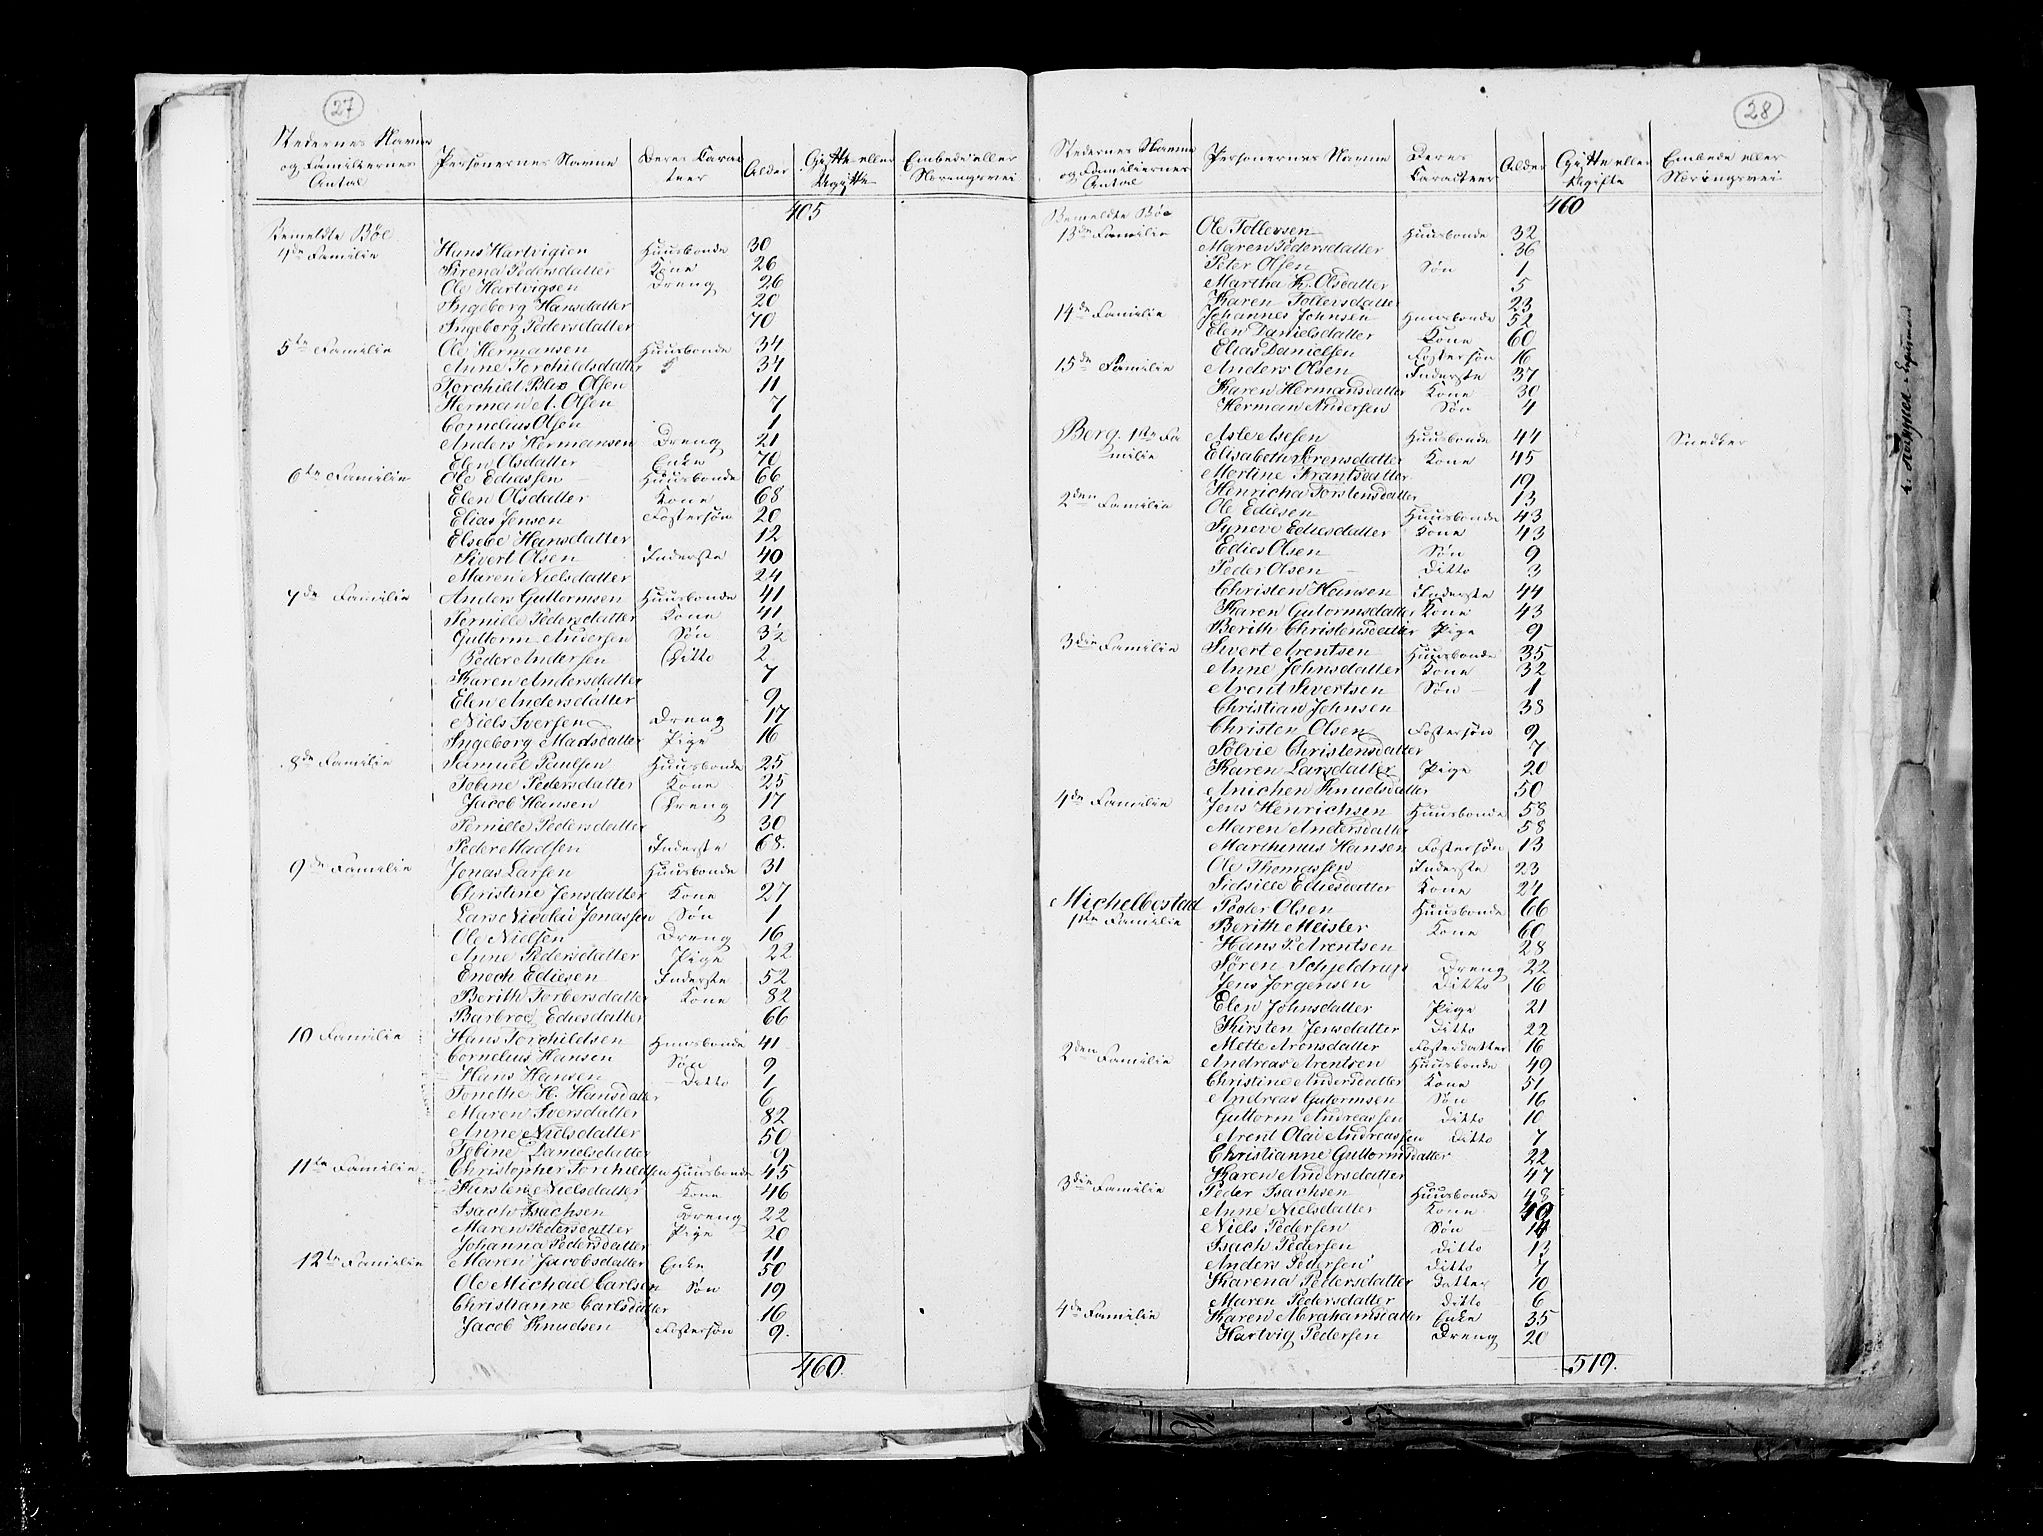 27
Stedernes Navne og Familiernes Antal | Personernes Navne | Deres Caracteer | Alder | Gifte eller Ugifte | Embede eller Næringsvei
405
Bemeldte Böe
4de Familie | Hans Hartvigsen | Huusbonde | 30
Sirena Pedersdatter | Kone | 26
Ole Hartvigsen | Dreng | 26
Ingeborg Hansdatter | 20
Ingeborg Pedersdatter | 70
5te Familie | Ole Hermansen | Huusbonde | 34
Anne Torchildsdatter | 34
Torchild Olsen | 11
Herman A. Olsen | 7
Cornelius Olsen | 1
Anders Hermansen | Dreng | 21
Elen Olsdatter | Enke | 70
6te Familie | Ole Ediassen | Huusbonde | 66
Elen Olsdatter | Kone | 68
Elias Jensen | Fostersøn | 20
Elsebe Hansdatter | 12
Sivert Olsen | Inderste | 40
Maren Nielsdatter | 24
7de Familie | Anders Guttormsen | Huusbonde | 41
Pernille Pedersdatter | Kone | 41
Guttorm Andersen | Søn | 3½
Peder Andersen | Ditto | 2
Karen Andersdatter | 7
Elen Andersdatter | 9
Niels Iversen | Dreng | 17
Ingeborg Madsdatter | Pige | 16
8de Familie | Samuel Paulsen | Huusbonde | 25
Tobine Pedersdatter | Kone | 25
Jacob Hansen | Dreng | 17
Pernille Pedersdatter | 30
Peder Madsen | Inderste | 68.
9de Familie | Jonas Larsen | Huusbonde | 31
Christine Jensdatter | Kone | 27
Lars Nicolai Jonassen | Søn | 1
Ole Nielsen | Dreng | 16
Anne Pedersdatter | Pige | 22
Enoch Ediesen | Inderste | 52
Berith Torbersdatter | Kone | 82
Barbroe Ediesdatter | 66
10 Familie | Hans Torchildsen | Huusbonde | 41
Cornelius Hansen | Søn | 9
Hans Hansen | Ditto | 1
Tonethe H. Hansdatter | 6
Maren Iversdatter | 82
Anne Nielsdatter | 50
Tobine Danielsdatter | 9
11te Familie | Christopher Torchildsen | Huusbonde | 45
Kirsten Nielsdatter | Kone | 46
Isach Isachsen | Dreng | 22
Maren Pedersdatter | Pige | 20
Johanna Pedersdatter | 11
12te Familie | Maren Jacobsdatter | Enke | 50
Ole Michael Carlsen | Søn | 19
Christianne Carlsdatter | 16
Jacob Knudsen | Fostersøn | 9.
460.
28
Stedernes Navne og Familiernes Antal | Personernes Navne | Deres Caracteer | Alder | Gifte eller Ugifte | Embede eller Næringsvei
460
Bemeldte Böe
13de Familie | Ole Tollersen | Huusbonde | 32
Maren Pedersdatter | 36
Peter Olsen | Søn | 1
Martha K. Olsdatter | 5
Karen Tollersdatter | 23
14de Familie | Johannes Johnsen | Huusbonde | 52
Elen Danielsdatter | Kone | 60
Elias Danielsen | Fostersøn | 16
15de Familie | Anders Olsen | Inderste | 37
Karen Hermansdatter | Kone | 30
Herman Andersen | Søn | 4
Berg. 1ste Familie | Asle Aslesen | Huusbonde | 44 | Snedker
Elisabeth Sørensdatter | Kone | 45
Martine Frantsdatter | 19
Henricha Torstensdatter | 13
2den Familie | Ole Ediesen | Huusbonde | 43
Synove Ediesdatter | Kone | 43
Edies Olsen | Søn | 9
Peder Olsen | Ditto | 3
Christen Hansen | Inderste | 44
Karen Gutormsdatter | Kone | 43
Berith Christensdatter | Pige | 9
3die Familie | Sivert Arentsen | Huusbonde | 35
Anne Johnsdatter | Kone | 32
Arent Sivertsen | Søn | 1
Christian Johnsen | 38
Christen Olsen | Fostersøn | 9
Solvie Christensdatter | 7
Karen Larsdatter | Pige | 20
Anichen Knudsdatter | 50
4de Familie | Jens Henrichsen | Huusbonde | 58
Maren Andersdatter | 58
Marthinus Hansen | Fostersøn | 13
Ole Thomassen | Inderste | 23
Sidsille Ediesdatter | Kone | 24
Michelbostad 1ste Familie | Peder Olsen | Huusbonde | 66
Berith Meisler | Kone | 60
Hans P. Arentsen | 28
Sören Schjeldrup | Dreng | 22
Jens Jörgensen | Ditto | 16
Elen Johnsdatter | Pige | 21
Kirsten Jensdatter | Ditto | 22
Mette Aronsdatter | Fosterdatter | 16
2den Familie | Andreas Arentsen | Huusbonde | 49
Christine Andersdatter | Kone | 51
Andreas Gutormsen | Søn | 16
Guttorm Andreassen | Ditto | 10
Arent Olai Andreassen | Ditto | 7
Christianne Guttormsdatter | 22
Karen Andersdatter | 47
3die Familie | Peder Isachsen | Huusbonde | 48
Anne Nielsdatter | Kone | 40
Niels Pedersen | Søn | 14
Isach Pedersen | Ditto | 13
Anders Pedersen | Ditto | 7
Karena Pedersdatter | Datter | 10
Maren Pedersdatter | Ditto | 6
4de Familie | Karen Abrahamsdatter | Enke | 35
Hartvig Pedersen | Dreng | 20
519.